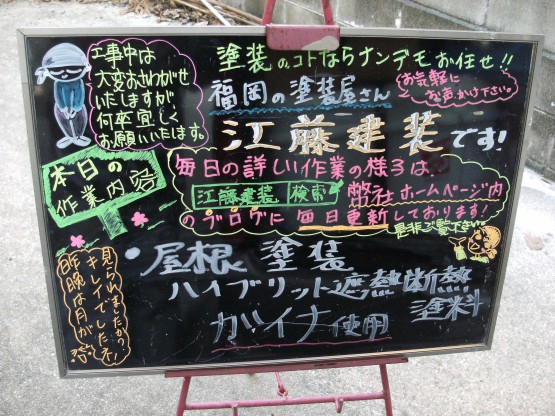 工事中は
大変おさわがせ
いたしますが、
何卒宜しく
お願いいたします。
塗装のコトならナンデモお任せ!!
福岡の塗装屋さん
お気軽に
お声かけ下さい。
江藤建装です!
本日の
作業内容
毎日の詳しい作業の様子は、
江藤建装 検索 弊社ホームページ内
のブログに毎日更新しております!
是非ご覧下さい!
・屋根塗装
ハイブリット遮熱断熱
塗料
ガイナ使用
昨晩は月が
キレイでしたネ
見られましたか?